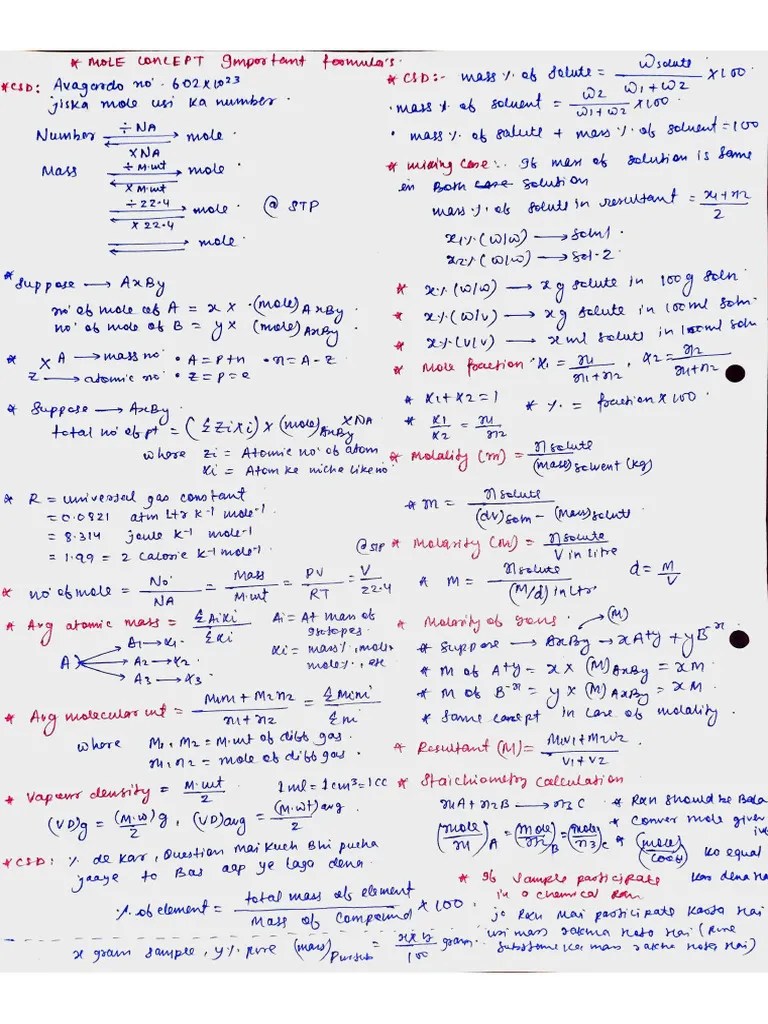 * MOLE CONCEPT Important formula's.
* CSD: Avagardo no. 602X10²³
jiska mole usi ka number.
Number ÷NA ×NA mole.
Mass ÷M.wt × M.wt mole.
÷22.4 × 22.4 mole. @ STP
mole.
* Suppose ⟶ AxBy
no. of mole of A = x × (mole)AxBy
no. of mole of B = y × (mole)AxBy
* X A ⟶ mass no. • A = P+n • n = A-Z.
Z ⟶ atomic no. • Z = P = e
* Suppose ⟶ AxBy.
total no. of pt = (ΣZiXi) × (mole)AxBy ×NA
where Zi = Atomic no. of atom
Xi = Atom ke niche likeno.
* R = universal gas constant
= 0.0821 atm Ltr K⁻¹ mole⁻¹
= 8.314 joule K⁻¹ mole⁻¹
= 1.99 = 2 Calorie K⁻¹ mole⁻¹
* no. of mole = No./NA = Mass/M.wt = PV/RT = V/22.4 @STP
* Avg atomic mass = ΣAiXi/ΣXi Ai = At mass of isotopes.
A A1→X1. Xi = mass%, mole%
A2→X2.
A3→X3.
* Avg molecular wt = M1n1 + M2n2/n1+n2 = ΣMini/Σni
where M1, M2 = M.wt of diff gas.
n1, n2 = mole of diff gas.
* Vapour density = M.wt/2 1ml = 1cm³ = 1cc
(VD)g = (M.w)g/2, (VD)avg = (M.wt)avg/2
* CSD: % de kar, Question mai kuch Bhi pucha
jaaye to Bas aap ye laga dena.
% of element = total mass of element/Mass of Compound × 100
x gram sample, y% Pure (mass) = x×y/100 gram.
* CSD:- mass % of solute = Wsolute/W1+W2 × 100
• mass % of solvent = W2/W1+W2 × 100.
• mass % of salute + mass % of solvent = 100
* mixing case:. If mass of solution is same
in Both solution
mass % of solute in resultant = x1+x2/2
x1% (W/W) ⟶ soln1.
x2% (W/W) ⟶ Sol-2
* x% (W/W) ⟶ x g solute in 100g soln.
* x% (W/V) ⟶ x g solute in 100ml soln.
* x% (V/V) ⟶ x ml solute in 100ml soln
* Mole fraction X1 = n1/n1+n2, X2 = n2/n1+n2
* X1+X2 = 1 * % = fraction × 100.
* X1/X2 = n1/n2
* Molality (m) = nsolute/(mass)solvent (kg)
* m = nsolute/(dV)soln - (Mass)solute
* Molarity (M) = nsolute/V in litre
* M = nsolute/(M/d) in Ltr. d = M/V
* Molarity of ions. (M)
* Suppose ⟶ AxBy → xA⁺ʸ + yB⁻ˣ
* M of A⁺ʸ = x × (M)AxBy = xM.
* M of B⁻ˣ = y × (M)AxBy = xM.
* Same concept in case of molality.
* Resultant (M) = M1V1+M2V2/V1+V2
* Staichiometry Calculation
n1A + n2B ⟶ n3C * Rxn should be Bala
(mole/n1)A = (mole/n2)B = (mole/n3)C * Conver mole given
* (mole/coeff) ko equal
kar dena
* If sample participate
in a chemical Rxn.
jo Rxn mai participate karta hai
usi mass rakhna hota hai (Pure
substance ka mass rakhna hota hai)